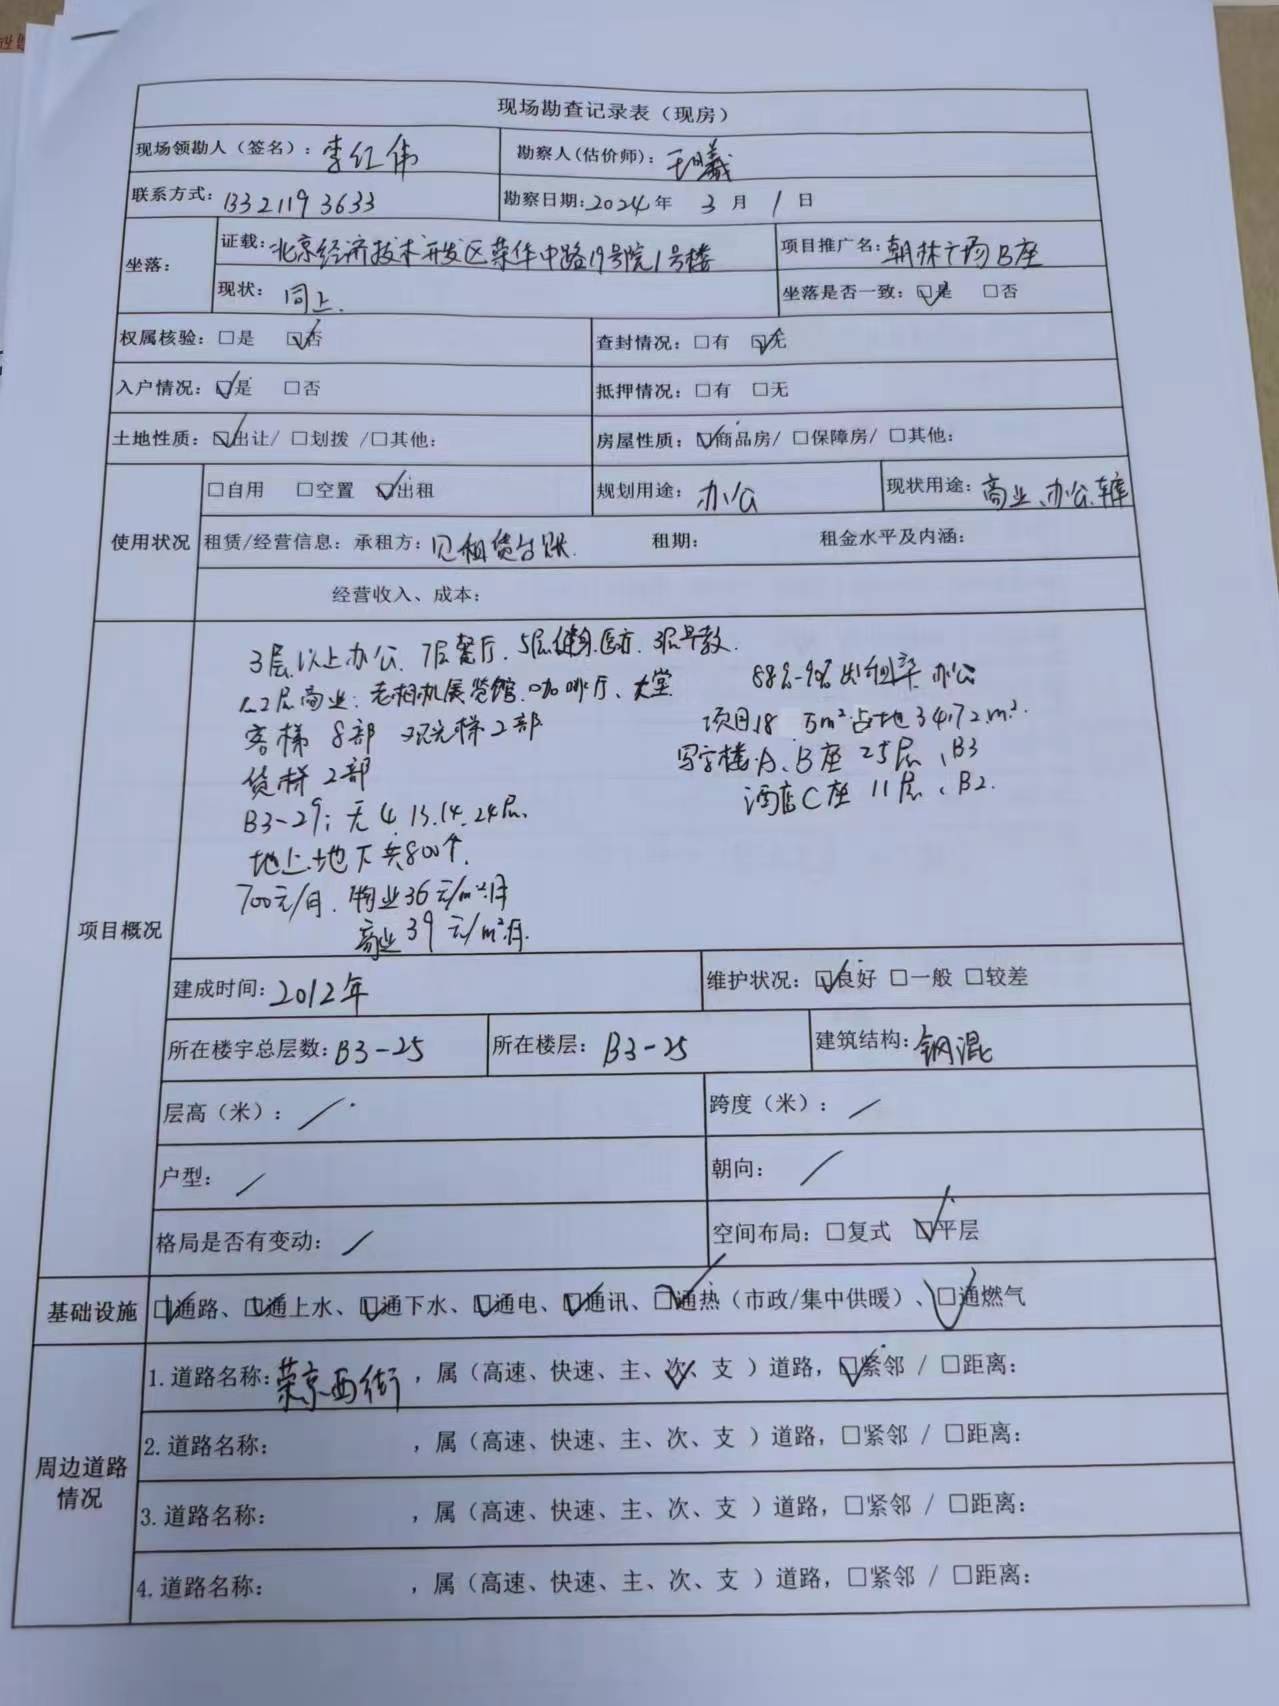 现场勘查记录表（现房）
现场领勘人（签名）：李红伟 勘察人(估价师)：王曦
联系方式：13321193633 勘察日期：2024年 3月 1日
坐落：
证载：北京经济技术开发区荣华中路19号院1号楼 项目推广名：朝林广场B座
现状：同上. 坐落是否一致：☑是 □否
权属核验：□是 ☑否 查封情况：□有 ☑无
入户情况：☑是 □否 抵押情况：□有 □无
土地性质：☑出让/ □划拨 /□其他: 房屋性质：☑商品房/ □保障房/ □其他:
使用状况
□自用 □空置 ☑出租 规划用途：办公 现状用途：商业、办公、车库
租赁/经营信息：承租方：见租赁台账. 租期: 租金水平及内涵:
经营收入、成本:
项目概况
3层以上办公. 7层餐厅. 5层健身. 3层早教.
1.2层商业：老相机展览馆.咖啡厅、大堂 出租率 办公
客梯 8部 观光梯2部 项目18 万m²占地3472m².
货梯 2部 写字楼A、B座 25层、B3
酒店C座 11层、B2.
B3-29; 无4.13.14.24层.
地上地下共800个.
700元/月. 物业36元/m²·月
商业39元/m²·月.
建成时间：2012年 维护状况：☑良好 □一般 □较差
所在楼宇总层数：B3-25 所在楼层：B3-25 建筑结构：钢混
层高（米）：/ 跨度（米）：/
户型：/ 朝向：/
格局是否有变动：/ 空间布局：□复式 ☑平层
基础设施 ☑通路、☑通上水、☑通下水、☑通电、☑通讯、☑通热（市政/集中供暖）、☑通燃气
周边道路情况
1.道路名称：荣京西街，属（高速、快速、主、次✓、支 ）道路，☑紧邻 / □距离:
2.道路名称: ，属（高速、快速、主、次、支 ）道路，□紧邻 / □距离:
3.道路名称: ，属（高速、快速、主、次、支 ）道路，□紧邻 / □距离:
4.道路名称: ，属（高速、快速、主、次、支 ）道路，□紧邻 / □距离: